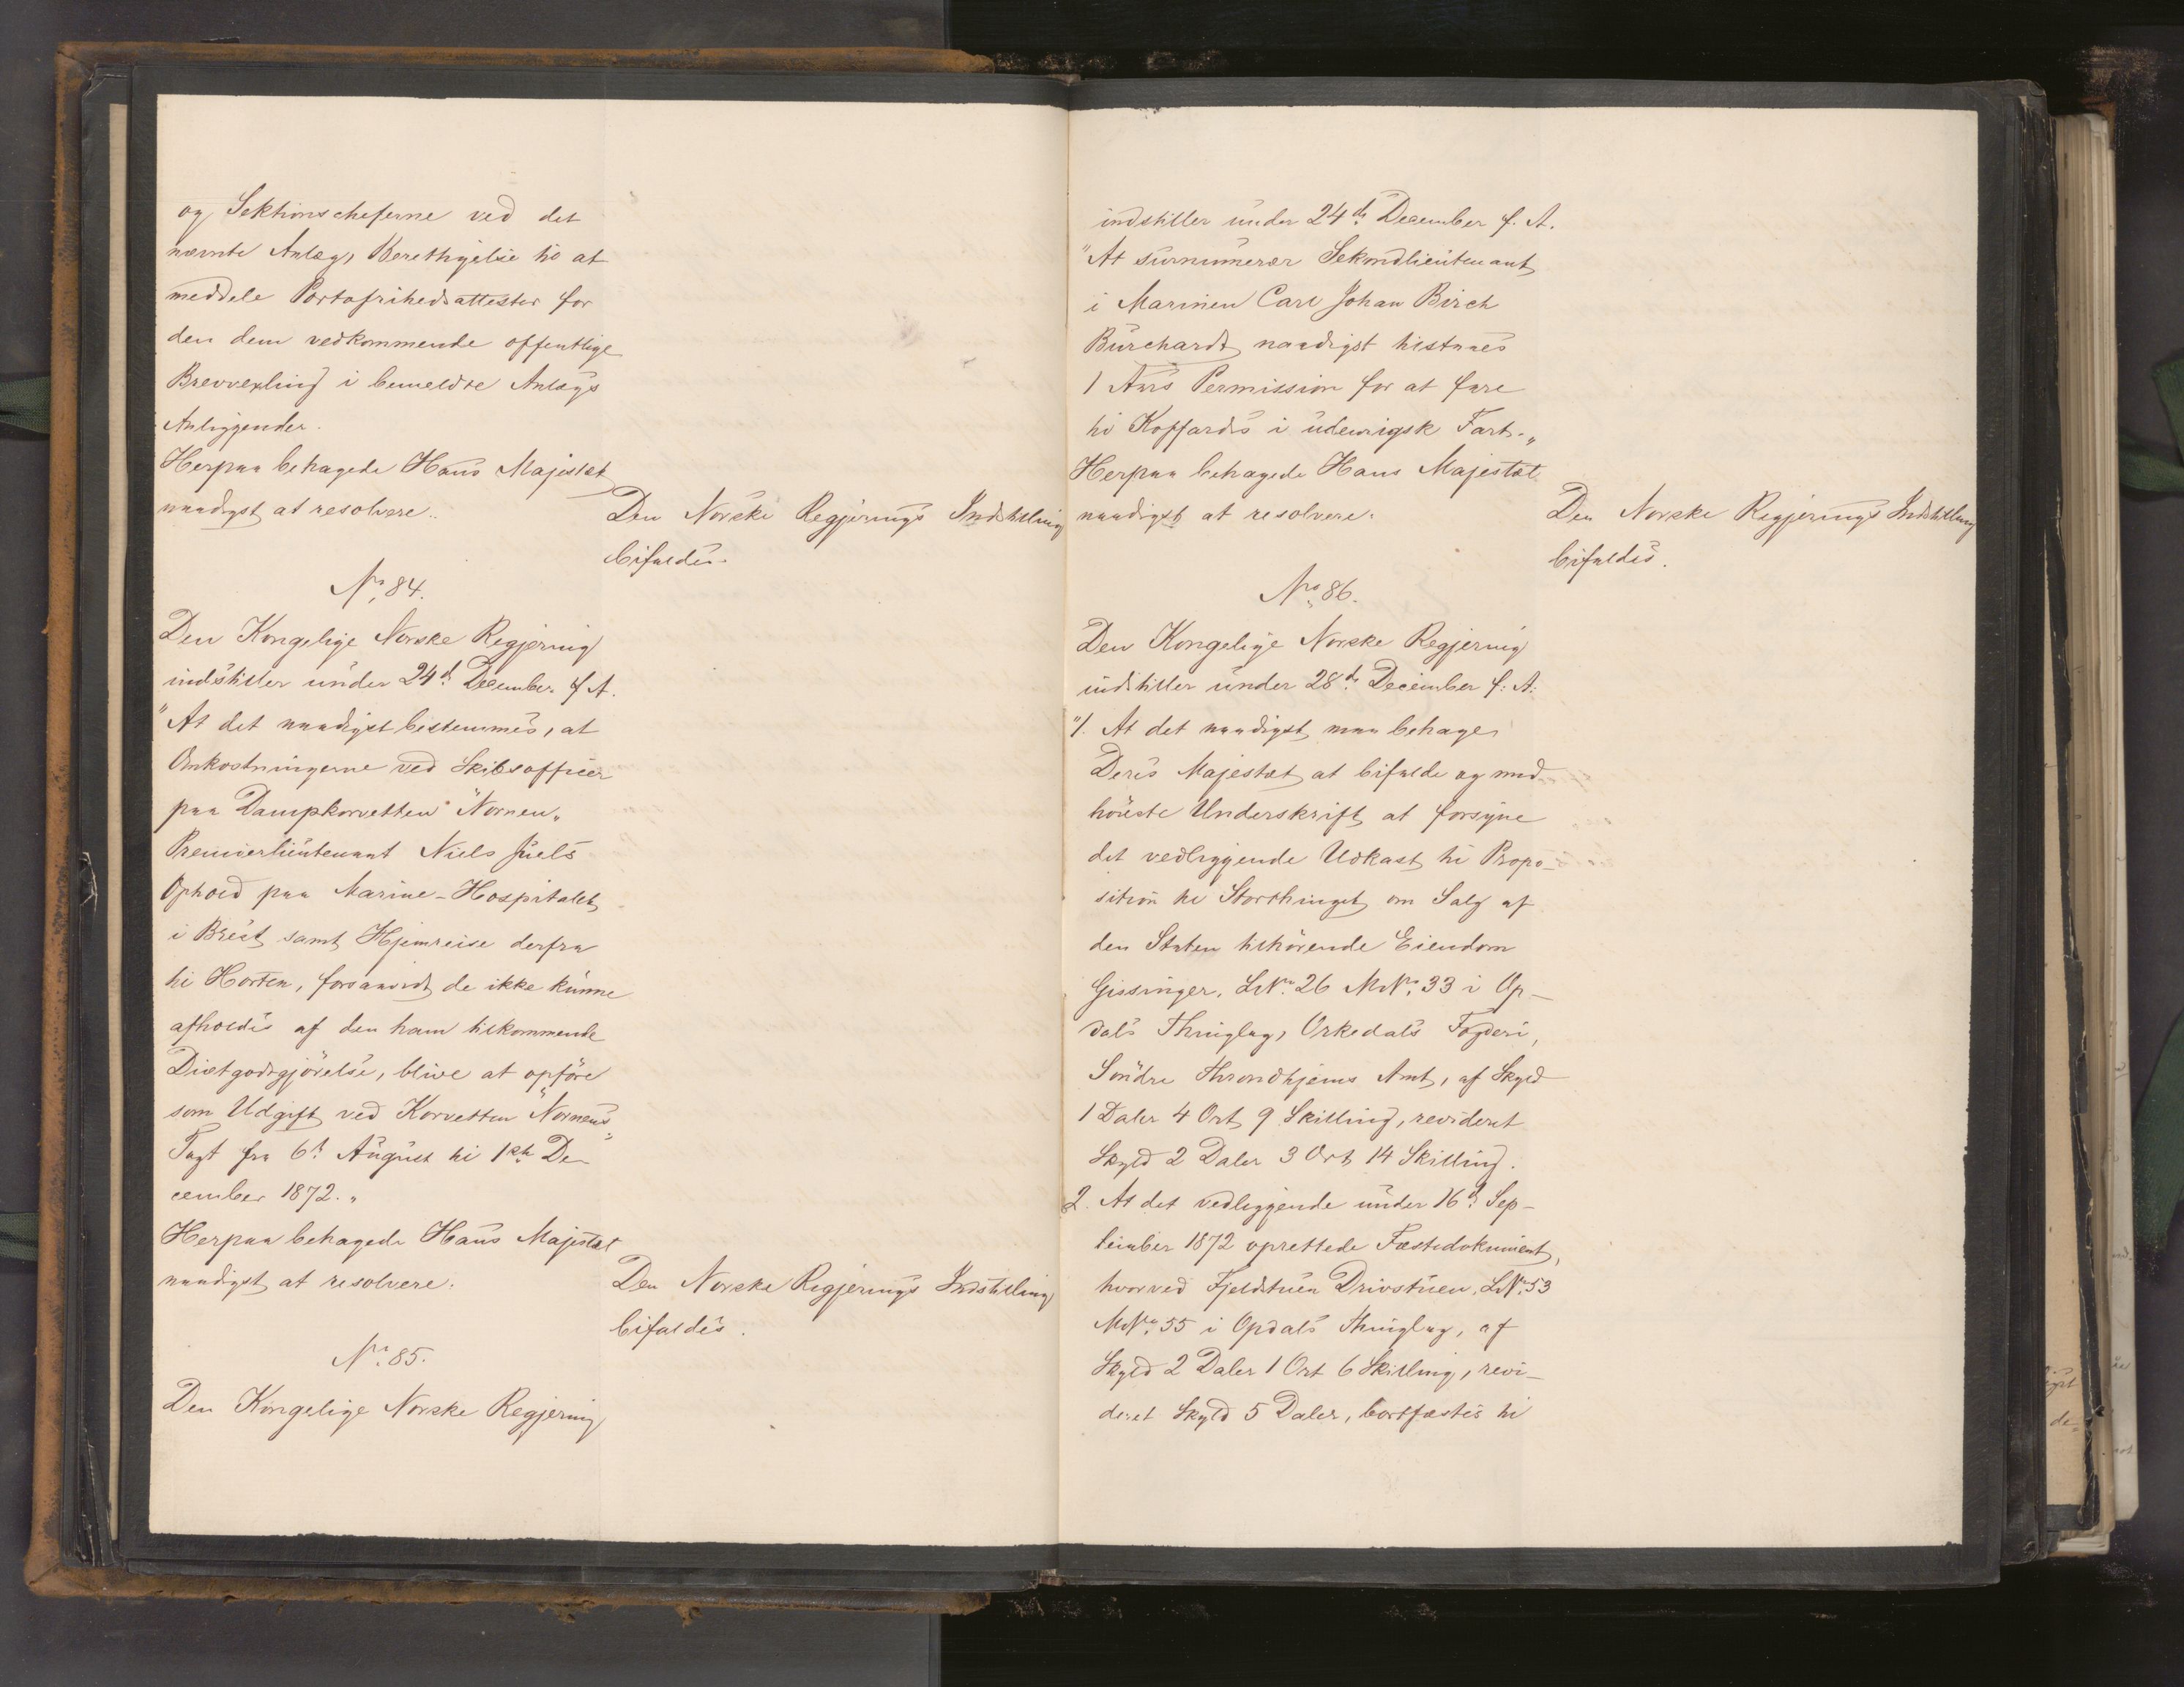 og Sektionscheferne ved det
nævnte Anlæg, Berettigelse til at
meddele Portofrihedsattester for
den dem vedkommende offentlige
Brevvexling i bemeldte Anlægs
Anliggender.
Herpaa behagede Hans Majestæt
naadigst at resolvere:
Den Norske Regjerings Indstilling
bifaldes.
No 84.
Den Kongelige Norske Regjering
indstiller under 24d. December f. A.
"At det naadigst bestemmes, at
Omkostningerne ved Skibsofficer
paa Dampkorvetten "Nornen"
Premierlieutenant Niels Juels
Ophold paa Marine-Hospitalet
i Brest samt Hjemreise derfra
til Horten, forsaavidt de ikke kunne
afholdes af den ham tilkommende
Diætgodtgjörelse, blive at opföre
som Udgift ved Korvetten "Nornens"
Togt fra 6t. August til 1ste De-
cember 1872."
Herpaa behagede Hans Majestæt
naadigst at resolvere:
Den Norske Regjerings Indstilling
bifaldes.
No 85.
Den Kongelige Norske Regjering
indstiller under 24de December f. A.
"At surnumerær Sekondlieutenant
i Marinen Carl Johan Birch
Burchardt naadigst tilstaaes
1 Aars Permission for at fare
til Koffardis i udenrigsk Fart."
Herpaa behagede Hans Majestæt
naadigst at resolvere:
Den Norske Regjerings Indstilling
bifaldes.
No 86.
Den Kongelige Norske Regjering
indstiller under 28de December f: A:
"1. At det naadigst maa behage
Deres Majestæt at bifalde og med
höieste Underskrift at forsyne
det vedliggende Udkast til Propo-
sition til Storthinget om Salg af
den Staten tilhörende Eiendom
Gissinger, LNo. 26 MNo. 33 i Op-
dals Thinglag, Orkedals Fogderi,
Söndre Throndhjems Amt, af Skyld
1 Daler 4 Ort 9 Skilling, revideret
Skyld 2 Daler 3 Ort 14 Skilling.
2. At det vedliggende under 16d. Sep-
tember 1872 oprettede Fæstedokument,
hvorved Fjeldstuen Drivstuen, LNo. 53
MNo. 55 i Opdals Thinglag, af
Skyld 2 Daler 1 Ort 6 Skilling, revi-
deret Skyld 5 Daler, bortfæstes til